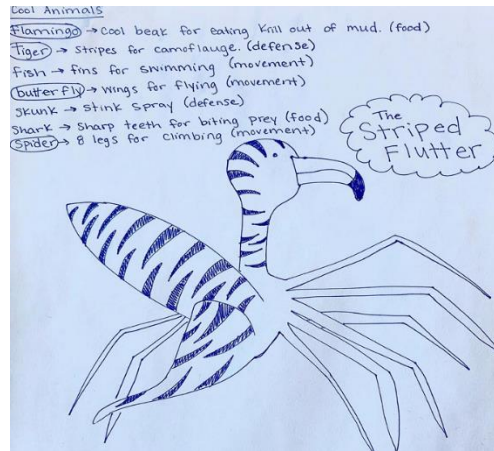 Cool Animals
Flamingo → Cool beak for eating krill out of mud. (food)
Tiger → Stripes for camoflauge. (defense)
Fish → fins for swimming (movement)
butterfly → wings for flying (movement)
Skunk → Stink spray (defense)
Shark → Sharp teeth for biting prey (food)
Spider → 8 legs for climbing (movement)
The
Striped
Flutter